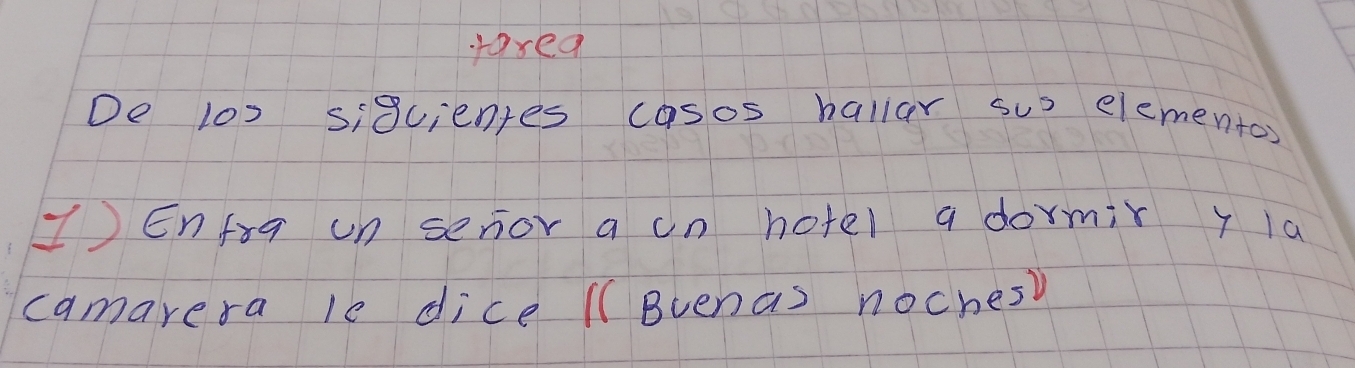 tarea
De los siguientes casos hallar sus elementos
1) Entra un señor a un hotel a dormir y la
camarera le dice (( Buenas noches))